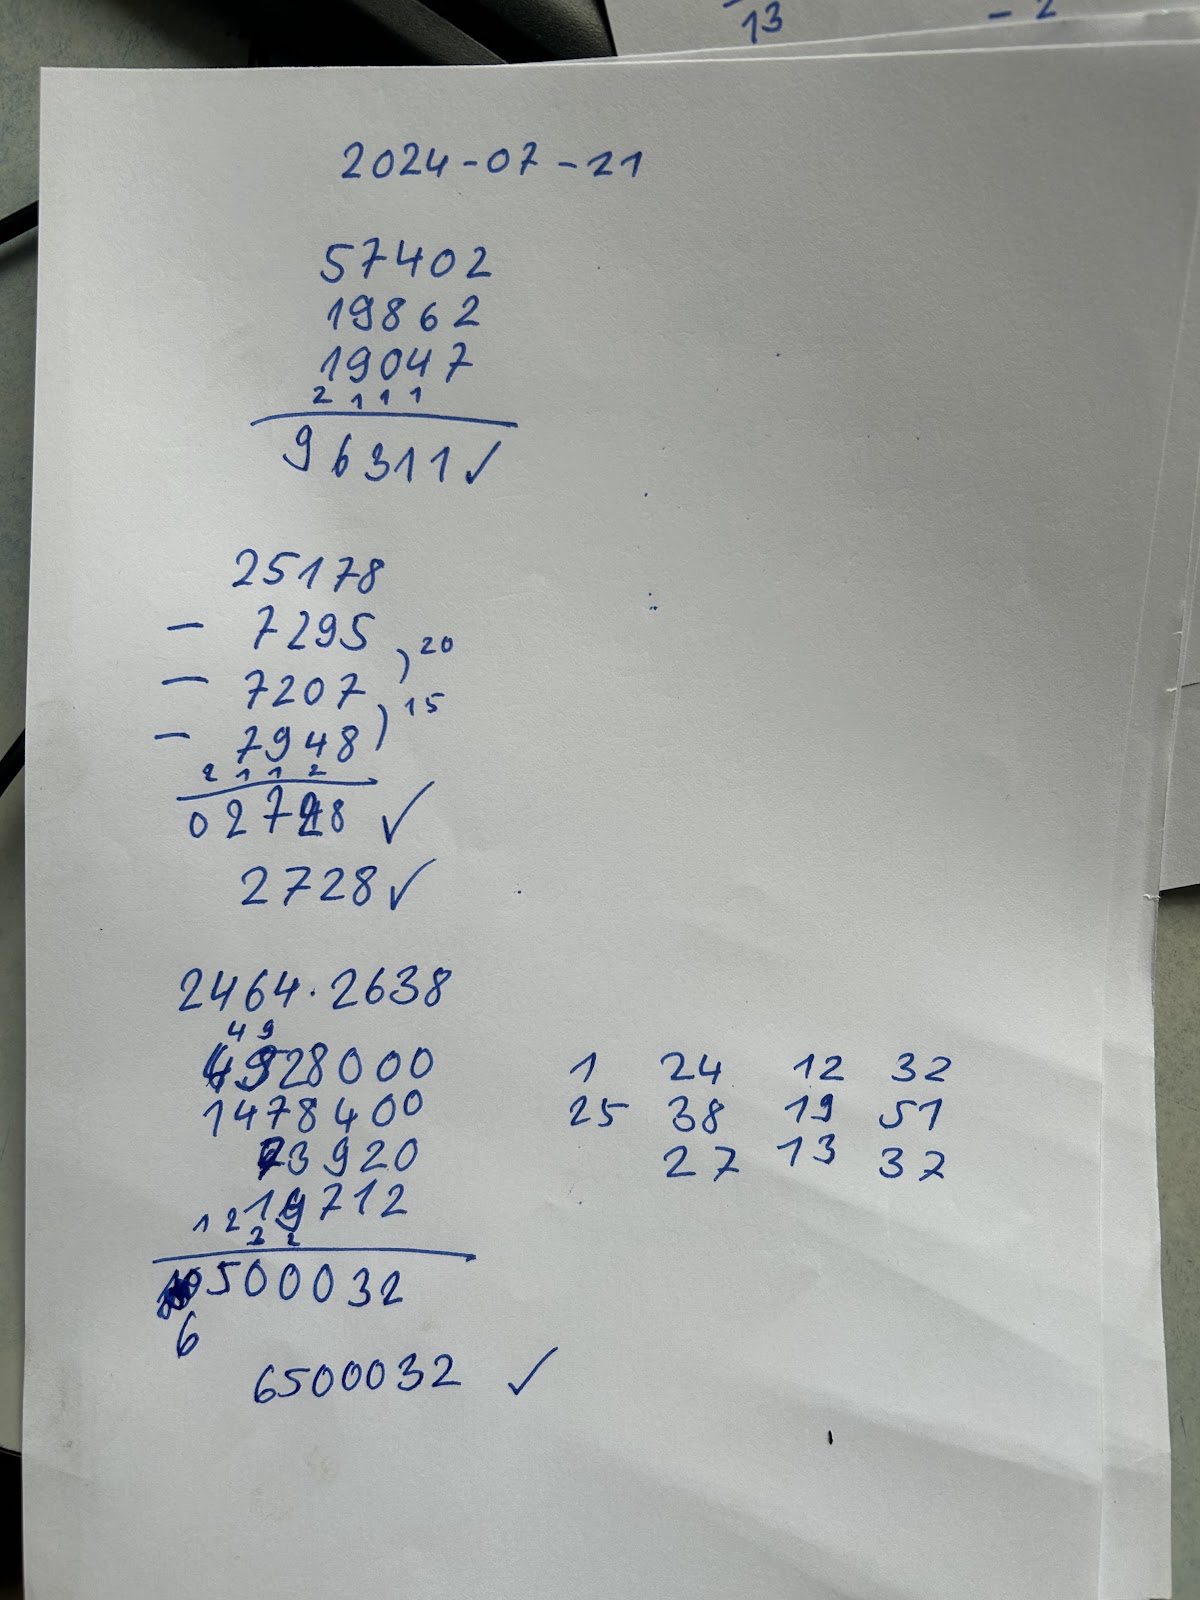 13 - 2
2024-07-21
57402
19862
19047
2 1 1 1
96311 ✓
25178
- 7295
) 20
- 7207
) 15
- 7948
2 1 1 2
02728 ✓
2728 ✓
2464 · 2638
4 9
4928000
1478400
73920
19712
1 2 2 2
500032
6
6500032 ✓
1 24 12 32
25 38 19 51
27 13 37